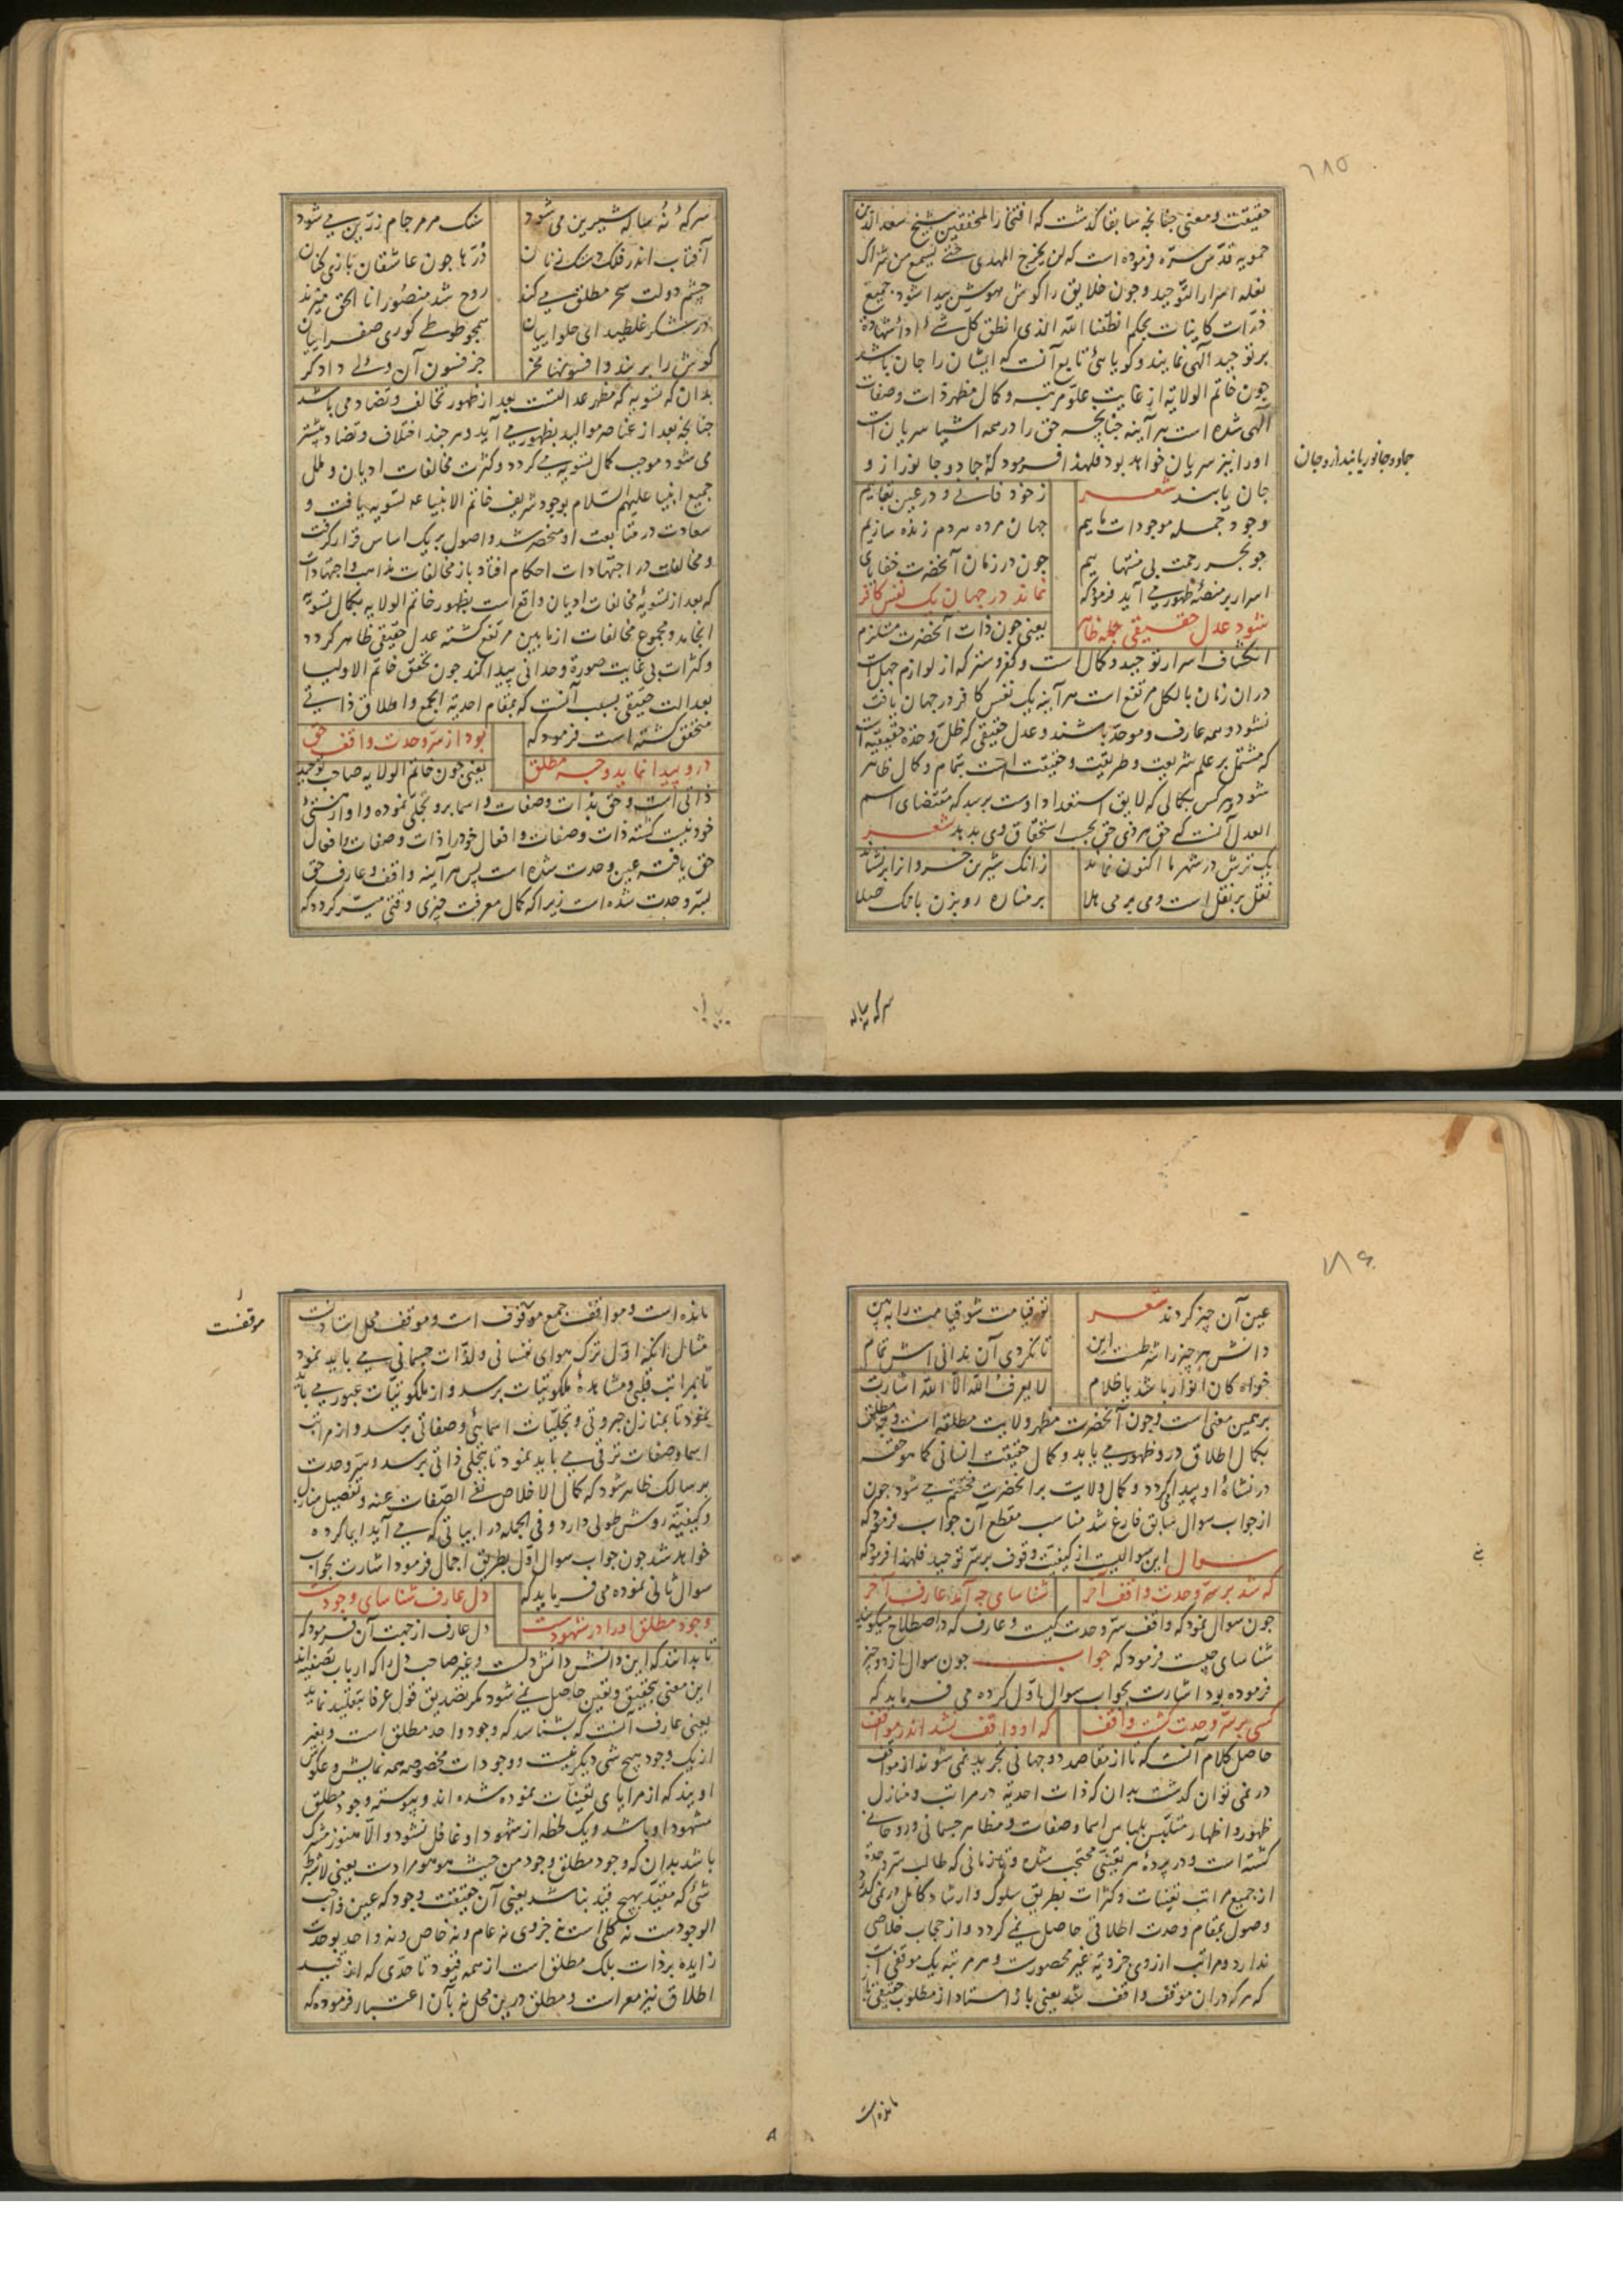 ۱۸۵
حقیقت و معنی چنانچه سابقا گذشت که افتخار المحققین شیخ سعد الدین
حمویه قدس سره فرموده است که لن یخرج المهدی حتی یسمع من شراک
نعله اسرار التوحید و چون خلایق را گوش هوش پیدا شود جمیع
ذرات کاینات بحکم انطقنا الله الذی انطق کل شیء ادای شهادة
بر توحید الهی نمایند و گویایی تابع آنست که ایشان را جان باشد
چون خاتم الولایه از غایت علو مرتبه و کمال مظهر ذات وصفات
الهی شده است هر آینه چنانچه حق را در همه اشیا سریان است
او را نیز سریان خواهد بود فلهذا فرمود که جماد و جانور از و
جماد و جانور یابند ازو جان
جان یابند شعر
ز خود فانی و در عین بقاییم
وجود جمله موجودات ماییم
جهان مرده مردم زنده سازیم
چو بحر رحمت بی منتهاییم
چون در زمان آنحضرت خفایای
اسرار بر منصه ظهور می آید فرمود که
نماند در جهان یک نفس کافر
شود عدل حقیقی جمله ظاهر
یعنی چون ذات آنحضرت مستلزم
انکشاف اسرار توحید و کمال است و کفر و ستر که از لوازم جهل است
در ان زمان بالکل مرتفع است هر آینه یک نفس کافر در جهان یافت
نشود و همه عارف و موحد باشند و عدل حقیقی که ظل وحدة حقیقیه است
که مشتمل بر علم شریعت و طریقت و حقیقت است بتمام و کمال ظاهر
شود و هر کس بکمالی که لایق استعداد اوست برسد که مقتضای اسم
العدل آنست که حق هر ذی حق بحسب استحقاق وی بدهد شعر
یک ترش در شهر ما اکنون نماند
زانک شیرین خسروانرا برنشاند
نقل بر نقل است و می بر می هلا
بر مناره رو بزن بانک صلا
سرکه نه ساله
سرکه نه ساله شیرین می شود
سنک مرمر جام زرین می شود
آفتاب اندر فلک دستک زنان
ذرها چون عاشقان بازی کنان
چشم دولت سحر مطلق می کند
روح شد منصور انا الحق میزند
در شکر غلطید ای حلواییان
همچو طوطی کوری صفراییان
گوش را بر بند و افسونها مخر
جز فسون آن ولی دادگر
بدان که تسویه که مظهر عدالتست بعد از ظهور تخالف و تضاد می باشد
چنانچه بعد از عناصر موالید بظهور می آید و هر چند اختلاف و تضاد بیشتر
می شود موجب کمال تسویه می گردد و کثرت مخالفات ادیان و ملل
جمیع انبیا علیهم السلام بوجود شریف خاتم الانبیا عم تسویه یافت و
سعادت در متابعت او منحصر شد و اصول بر یک اساس قرار گرفت
و مخالفات در اجتهادات احکام افتاد باز مخالفات مذاهب و اجتهادات
که بعد از تسویه مخالفات ادیان واقع است بظهور خاتم الولایه بکمال تسویه
انجامد و مجموع مخالفات از ما بین مرتفع گشته عدل حقیقی ظاهر گردد
و کثرات بی غایت صورة وحدانی پیدا کند چون تحقق خاتم الاولیا
بعدالت حقیقی بسبب آنست که بمقام احدیة الجمع و اطلاق ذاتی
متحقق گشته است فرمود که
بود از سر وحدت واقف حق
درو پیدا نماید وجه مطلق
یعنی چون خاتم الولایه صاحب توحید
ذاتی است و حق بذات و صفات و اسما برو تجلی نموده و او از هستی
خود نیست گشته ذات و صفات و افعال خود را ذات و صفات و افعال
حق یافته عین وحدت شده است پس هر آینه واقف و عارف حق
بسر وحدت شده است زیرا که کمال معرفت چیزی وقتی میسر گردد که
۱۸۶
عین آن چیز گردند شعر
تو قیامت شو قیامت را ببین
دانش هر چیز را شرطست این
تا نگردی آن ندانی اش تمام
خواه کان انوار باشد یا ظلام
لا یعرف الله الا الله اشارت
بر همین معنی است و چون آنحضرت مظهر ولایت مطلقه است وجه مطلق
بکمال اطلاق درو ظهور می یابد و کمال حقیقت انسانی کما هو حقه
در نشاءه او پیدا گردد و کمال ولایت بر آنحضرت مختتم می شود چون
از جواب سوال سابق فارغ شد مناسب مقطع آن جواب فرمود که
سوال این سوالیست از کیفیت وقوف بر سر توحید فلهذا فرمود که
که شد بر سر وحدت واقف آخر
شناسای چه آمد عارف آخر
چون سوال نمود که واقف سر وحدت کیست و عارف که در اصطلاح میگویند
شناسای چیست فرمود که جواب چون سوال از دو چیز
فرموده بود اشارت بجواب سوال اول کرده می فرماید که
کسی بر سر وحدت گشت واقف
که او واقف نشد اندر مواقف
حاصل کلام آنست که تا از مقاصد دو جهانی تجرید نمی شوند از مواقف
در نمی توان گذشت بدان که ذات احدیة در مراتب و منازل
ظهور و اظهار متلبس بلباس اسما و صفات و مظاهر جسمانی و روحانی
گشته است و در پرده هر تعینی محتجب شده و تا زمانی که طالب سر وحدة
از جمیع مراتب تعینات و کثرات بطریق سلوک و ارشاد کامل در نمی گذرد
وصول بمقام وحدت اطلاقی حاصل نمی گردد و از حجاب خلاصی
ندارد و مراتب از روی جزویة غیر محصورست و هر مرتبه یک موقفی است
که هر که در ان موقف واقف شد یعنی باز استاد از مطلوب حقیقی باز
مانده است
مانده است و مواقف جمع موقوف است و موقف محل استادنست
موقفست
مثال آنکه اول ترک هوای نفسانی و لذات جسمانی می باید نمود
تا بمراتب قلبی و مشاهده ملکوتیات برسد و از ملکوتیات عبور می باید
نمود تا بمنازل جبروتی و تجلیات اسمایی و صفاتی برسد و از مراتب
اسما و صفات ترقی می باید نمود تا بتجلی ذاتی برسد و سر وحدت
بر سالک ظاهر شود که کمال الاخلاص نفی الصفات عنه و تفصیل منازل
و کیفیة روش طولی دارد و فی الجمله در ابیاتی که می آید ایما کرده
خواهد شد چون جواب سوال اول بطریق اجمال فرمود اشارت بجواب
سوال ثانی نموده می فرماید که
دل عارف شناسای وجودست
وجود مطلق او را در شهودست
دل عارف از جهت آن فرمود که
تا بدانند که این دانش دانش دلست و غیر صاحب دل را که ارباب تصفیه اند
این معنی بتحقیق و یقین حاصل نمی شود مگر تصدیق قول عرفا بتقلید نماید
یعنی عارف آنست که بشناسد که وجود واحد مطلق است و بغیر
از یک وجود هیچ شی دیگر نیست و وجودات مخصوصه همه نمایش و عکوس
اویند که از مرایای تعینات نموده شده اند و پیوسته وجود مطلق
مشهود او باشد و یک لحظه از شهود او غافل نشود و الا هنوز مشرک
باشد بدان که وجود مطلق وجود من حیث هو هو مرادست یعنی لا بشرط
شیء که مقید بهیچ قید نباشد یعنی آن حقیقت وجود که عین واجب
الوجودست نه کلی است نه جزوی نه عام و نه خاص و نه واحد بوحدت
زایده بر ذات بلک مطلق است از همه قیود تا حدی که از قید
اطلاق نیز معراست و مطلق درین محل نه بآن اعتبار فرموده که